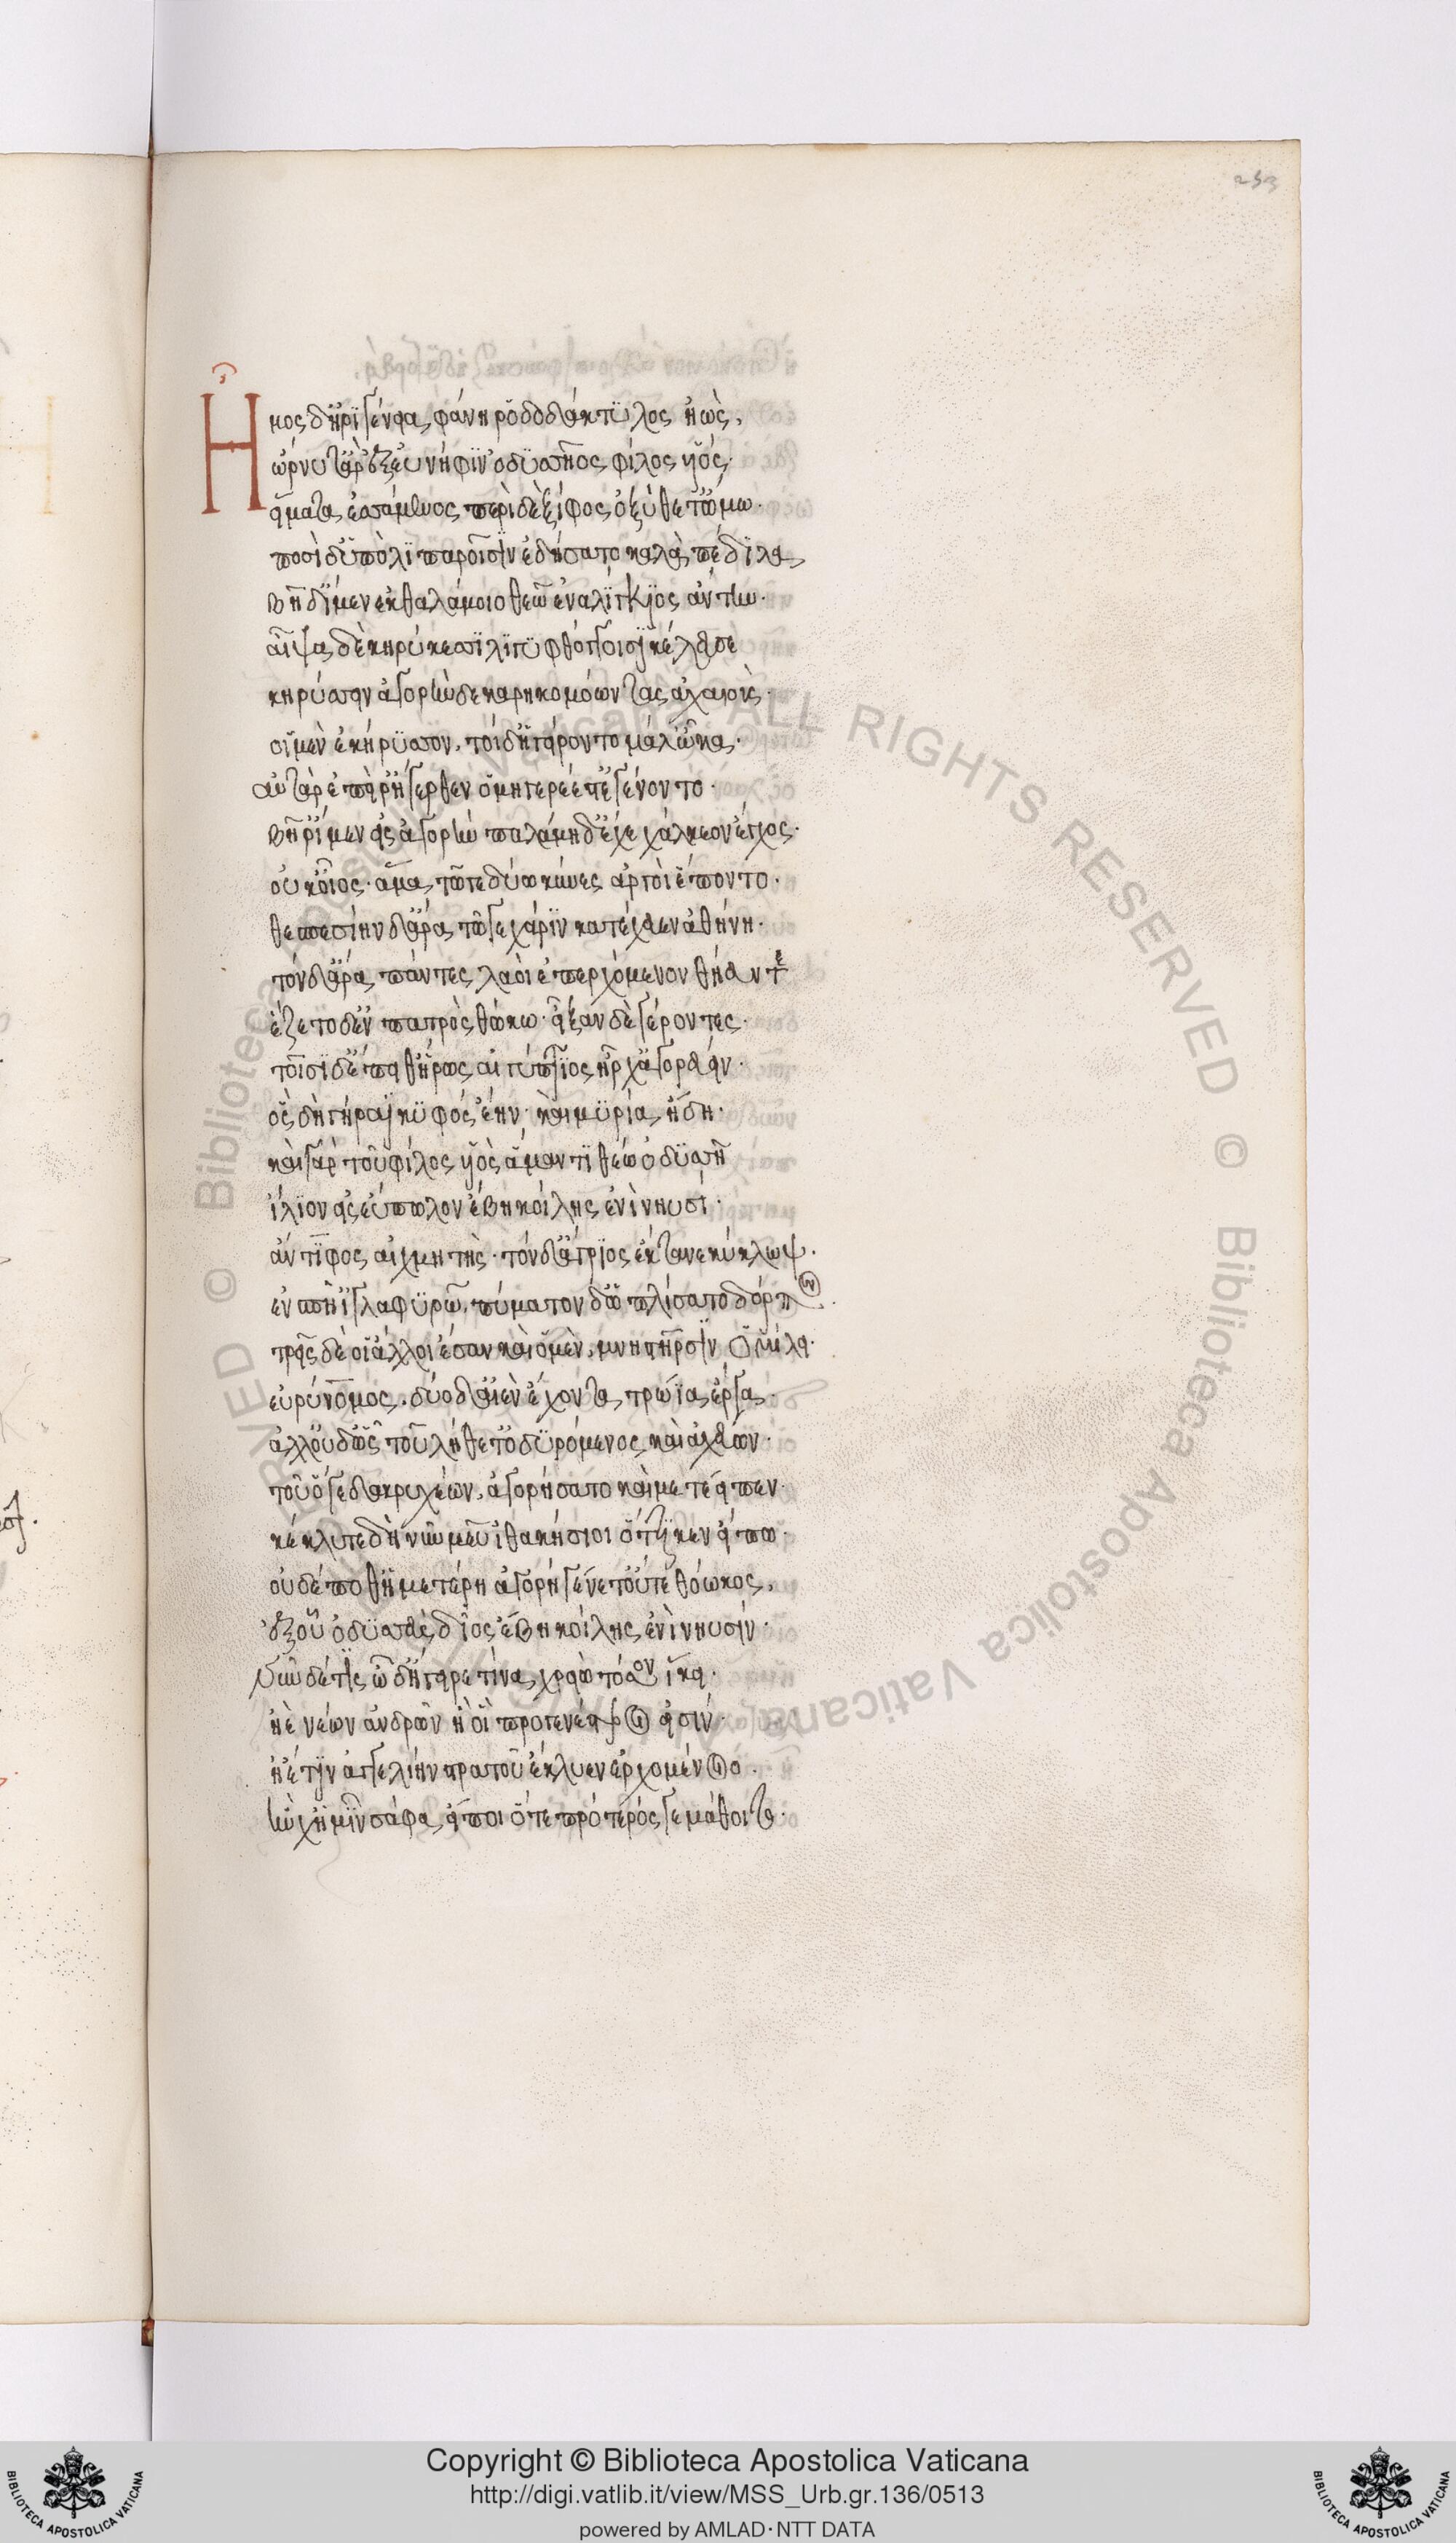 253
Ἦμος δ' ἠριγένεια φάνη ῥοδοδάκτυλος ἠώς,
ὤρνυτ' ἄρ' ἐξ εὐνῆφιν ὀδυσσῆος φίλος υἱός·
εἵματα ἑσσάμενος· περὶ δὲ ξίφος ὀξὺ θέτ' ὤμω·
ποσὶ δ' ὑπὸ λιπαροῖσιν ἐδήσατο καλὰ πέδιλα
βῆ δ' ἴμεν ἐκ θαλάμοιο θεῶ ἐναλίγκιος ἄντην·
αἶψα δὲ κηρύκεσσι λιγυφθόγγοισι κέλευσε
κηρύσσειν ἀγορὴν δὲ καρηκομόωντας ἀχαιούς·
οἱ μὲν ἐκήρυσσον, τοὶ δ' ἠγείροντο μάλ' ὦκα·
αὐτὰρ ἐπεί ῥ' ἤγερθεν ὁμηγερέες τ' ἐγένοντο·
βῆ ῥ' ἴμεν εἰς ἀγορὴν παλάμη δ' ἔχε χάλκεον ἔγχος·
οὐκ οἶος· ἅμα τῶ γε δύω κύνες ἀργοὶ ἕποντο·
θεσπεσίην δ' ἄρα τῶ γε χάριν κατέχευεν ἀθήνη·
τὸν δ' ἄρα πάντες λαοὶ ἐπερχόμενον θηεῦντο
ἕζετο δ' ἐν πατρὸς θώκω· εἶξαν δὲ γέροντες·
τοῖσι δ' ἔπειθ' ἥρως αἰγύπτιος ἦρχ' ἀγορεύειν·
ὃς δὴ γήραϊ κυφὸς ἔην· καὶ μυρία ἤδη·
καὶ γὰρ τοῦ φίλος υἱὸς ἅμ' ἀντιθέω ὀδυσσῆϊ
ἴλιον εἰς εὔπωλον ἔβη κοίλης ἐνὶ νηυσί·
ἄντιφος αἰχμητής· τὸν δ' ἄγριος ἔκτανε κύκλωψ·
ἐν σπῆϊ γλαφυρῶ, πύματον δ' ὡπλίσατο δόρπον
τρεῖς δέ οἱ ἄλλοι ἔσαν καὶ ὁ μὲν, μνηστῆρσιν ὁμίλει·
εὐρύνομος. δύο δ' αἰὲν ἔχον πατρώϊα ἔργα·
ἀλλ' οὐδ' ὣς τοῦ λήθετ' ὀδυρόμενος καὶ ἀχεύων·
τοῦ ὅ γε δακρυχέων, ἀγορήσατο καὶ μετέειπεν·
κέκλυτε δὴ νῦν μευ ἰθακήσιοι ὅττι κεν εἴπω·
οὐδέ ποθ' ἡμετέρη ἀγορὴ γένετ' οὔτε θόωκος,
ἐξ οὗ ὀδυσσεὺς δῖος ἔβη κοίλης ἐνὶ νηυσίν·
νῦν δὲ τίς ὧδ' ἤγειρε τίνα χρειὼ τόσον ἵκει·
ἠὲ νέων ἀνδρῶν ἢ οἳ προγενέστεροι εἰσίν·
ἠέ τιν' ἀγγελίην στρατοῦ ἔκλυεν ἐρχομένοιο·
ἣν χ' ἡμῖν σάφα εἴποι ὅτε πρότερός γε πύθοιτο·
Copyright © Biblioteca Apostolica Vaticana
http://digi.vatlib.it/view/MSS_Urb.gr.136/0513
powered by AMLAD·NTT DATA